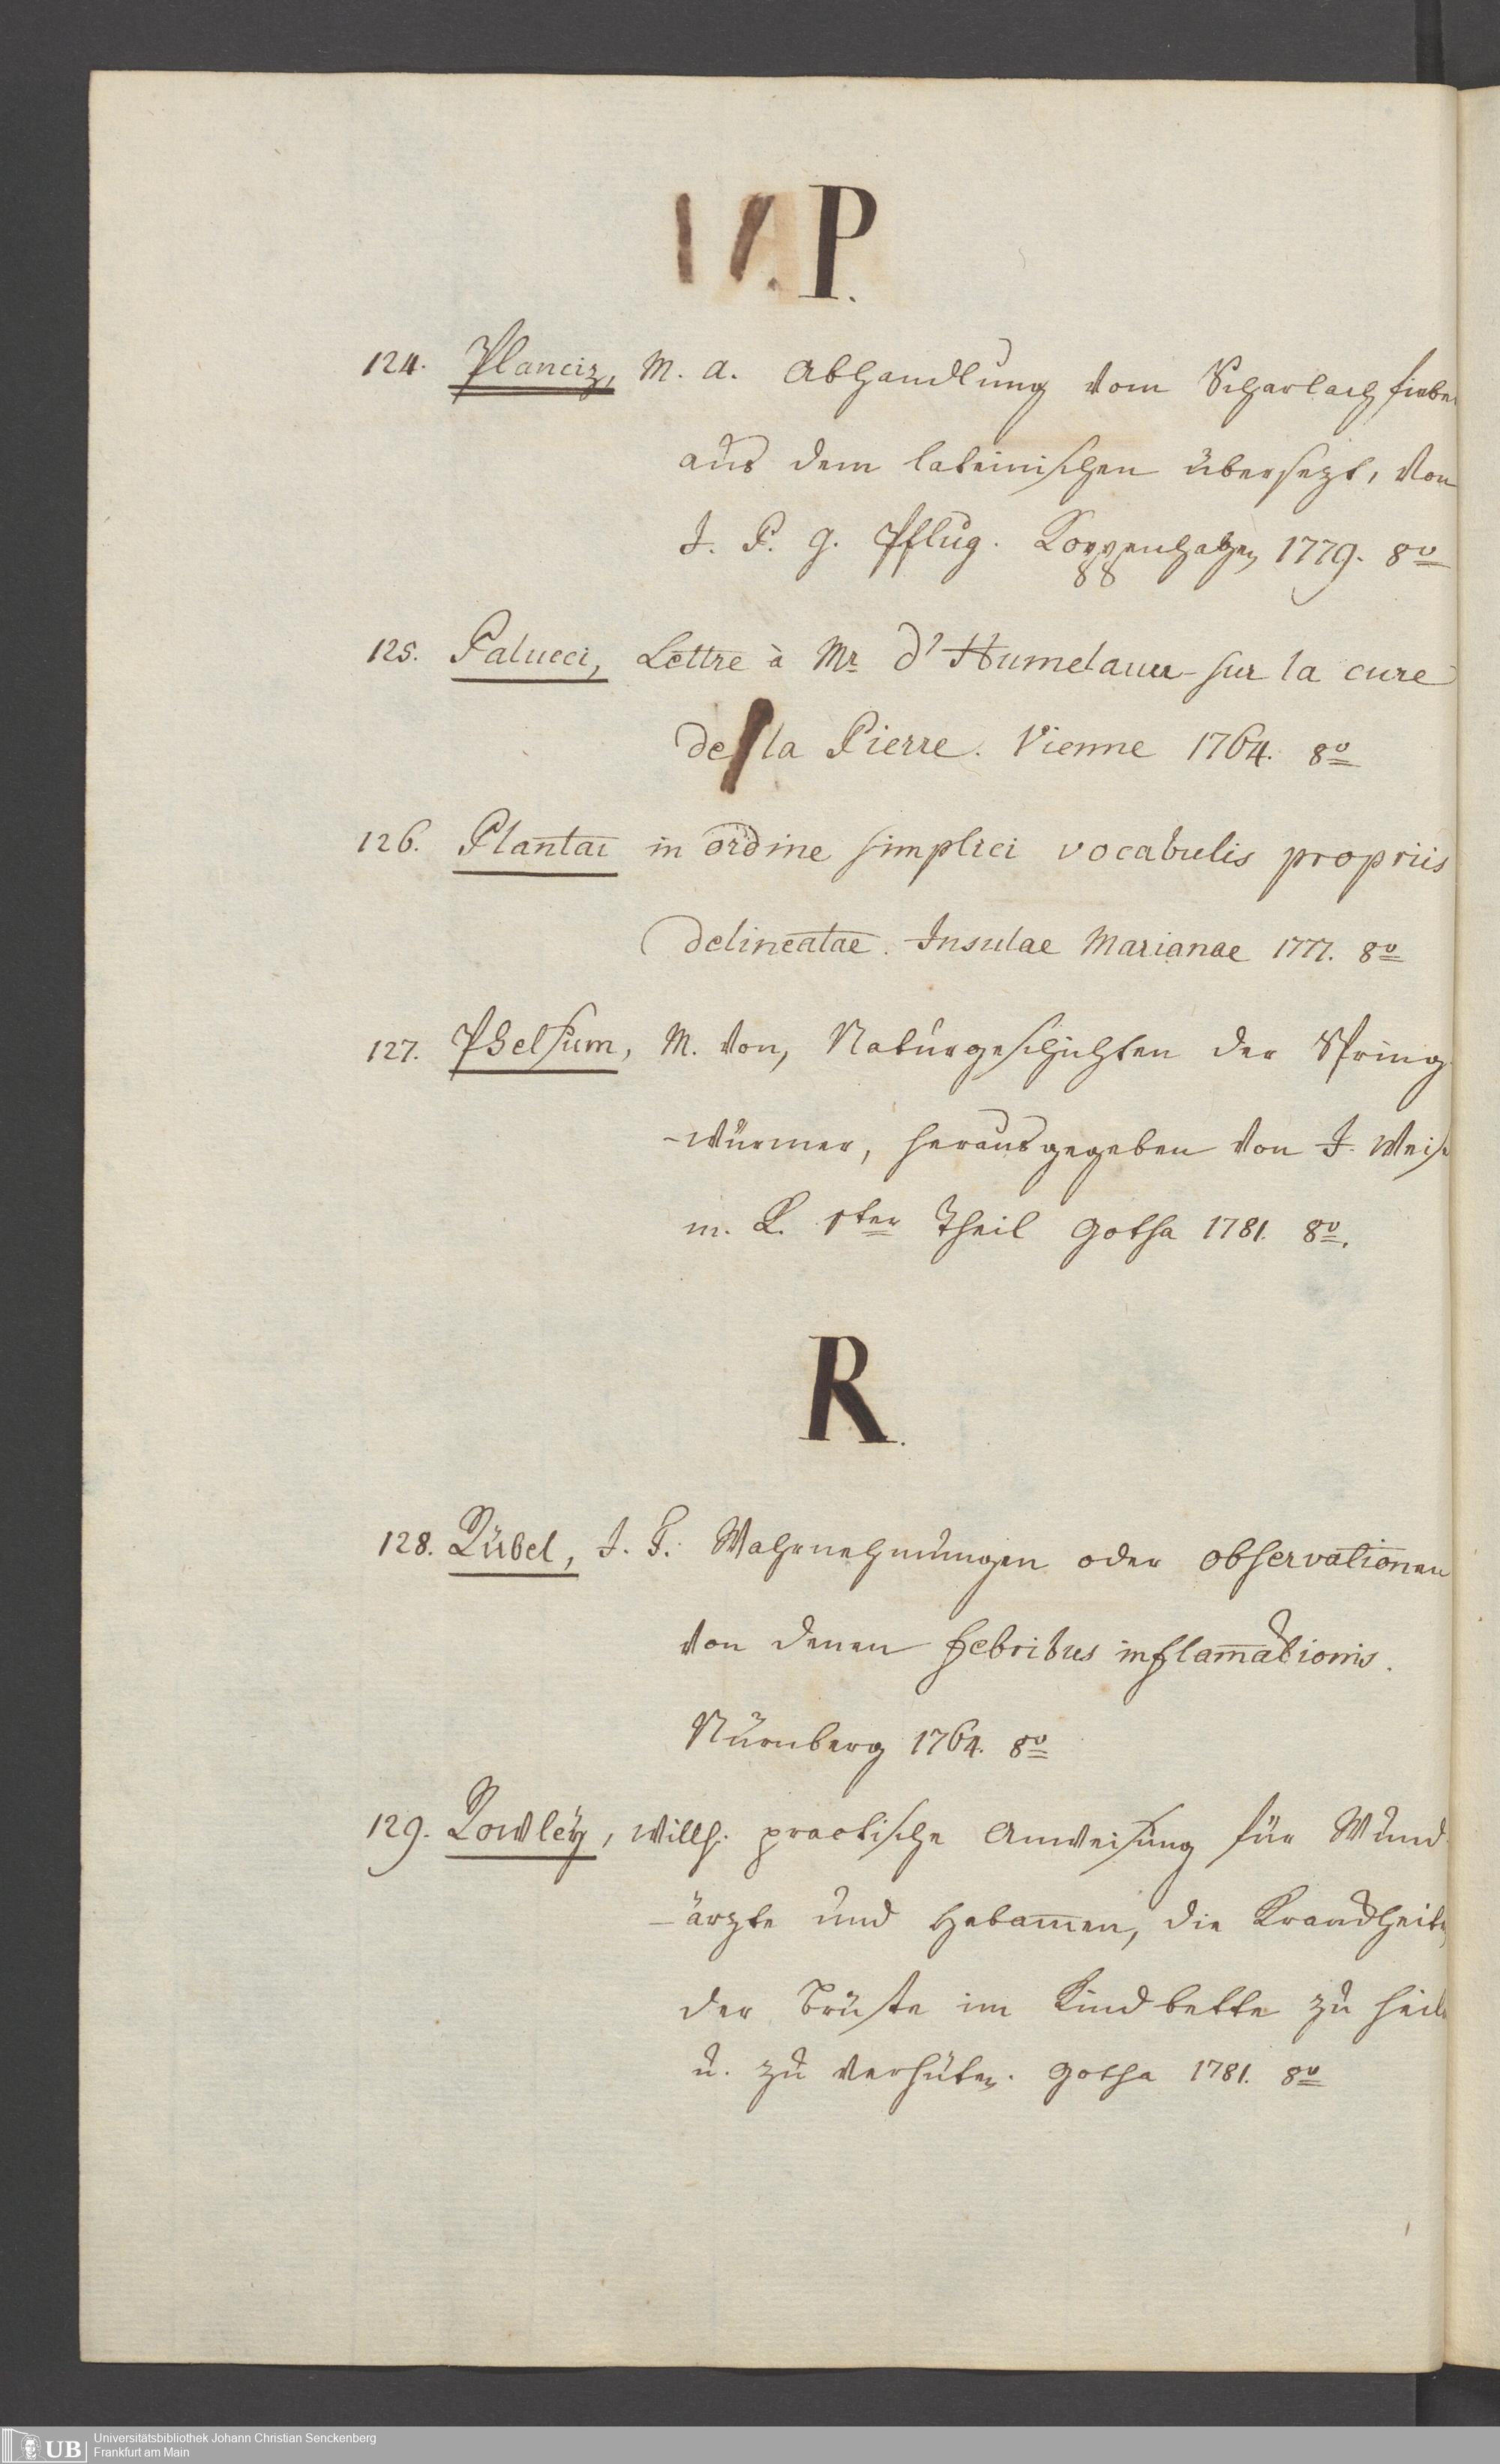 P.
124. Planciz, M. A. Abhandlung vom Scharlachfieber
aus dem lateinischen übersezt, von
J. P. G. Pflug. Koppenhagen 1779. 8º
125. Palucci, Lettre à Mr d'Humelauer sur la cure
de la Pierre. Vienne 1764. 8º
126. Plantae in ordine simplici vocabulis propriis
delineatae. Insulae Marianae 1777. 8º
127. Phelsum, M. von, Naturgeschichten der Spring
-würmer, herausgegeben von J. Weise
m. K. 1ter Theil Gotha 1781. 8º.
R.
128. Rübel, J. F. Wahrnehmungen oder observationen
von denen febribus inflam̅ationis.
Nürnberg 1764. 8º
129. Rowley, Willh. practische Anweisung für Wund
-ärzte und Hebam̅en, die Krandheiten
der Brüste im Kindbette zu heilen
u. zu verhüten. Gotha 1781. 8º
UB
Universitätsbibliothek Johann Christian Senckenberg
Frankfurt am Main